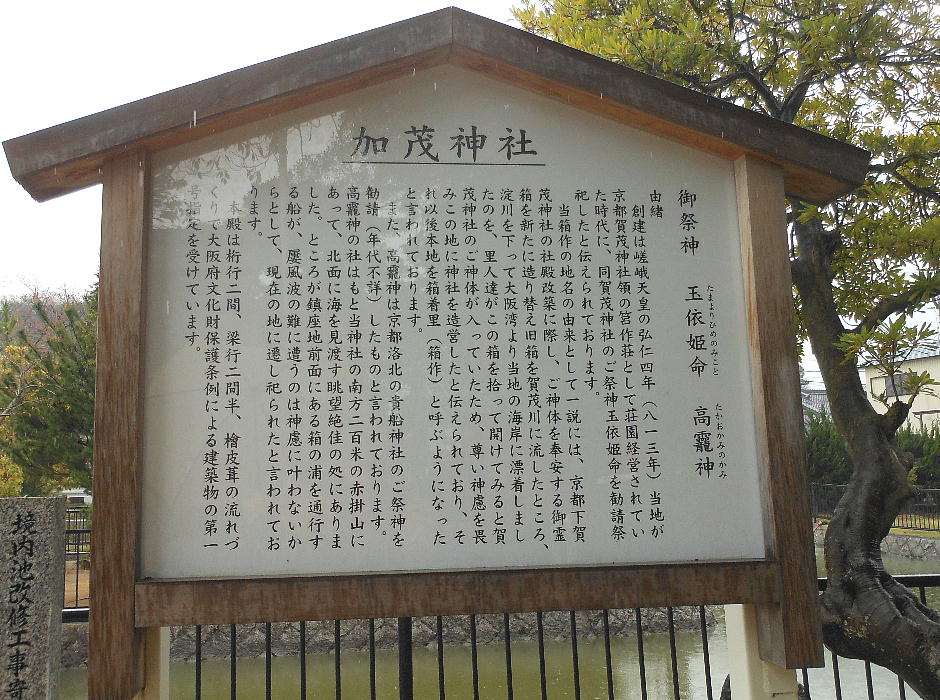 加茂神社
御祭神　玉依姫命　高龗神
たまよりひめのみこと　たかおかみのかみ
由緒
創建は嵯峨天皇の弘仁四年（八一三年）当地が
京都賀茂神社領の筥作荘として荘園経営されてい
た時代に、同賀茂神社のご祭神玉依姫命を勧請祭
祀したと伝えられております。
当箱作の地名の由来として一説には、京都下賀
茂神社の社殿改築に際し、ご神体を奉安する御霊
箱を新たに造り替え旧箱を賀茂川に流したところ、
淀川を下って大阪湾より当地の海岸に漂着しまし
たのを、里人達がこの箱を拾って開けてみると賀
茂神社のご神体が入っていたため、尊い神慮を畏
みこの地に神社を造営したと伝えられており、そ
れ以後本地を箱着里（箱作）と呼ぶようになった
と言われております。
また、高龗神は京都洛北の貴船神社のご祭神を
勧請（年代不詳）したものと言われております。
高龗神の社はもと当神社の南方二百米の赤掛山に
あって、北面に海を見渡す眺望絶佳の処にありま
した。ところが鎮座地前面にある箱の浦を通行す
る船が、屢風波の難に遭うのは神慮に叶わないか
らとして、現在の地に遷し祀られたと言われてお
ります。
本殿は桁行二間、梁行二間半、檜皮葺の流れづ
くりで大阪府文化財保護条例による建築物の第一
号指定を受けています。
境内池改修工事寄